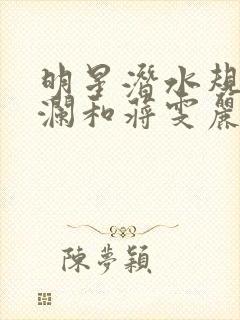 明星潛水規
瀾和蔣雯麗
陳夢穎